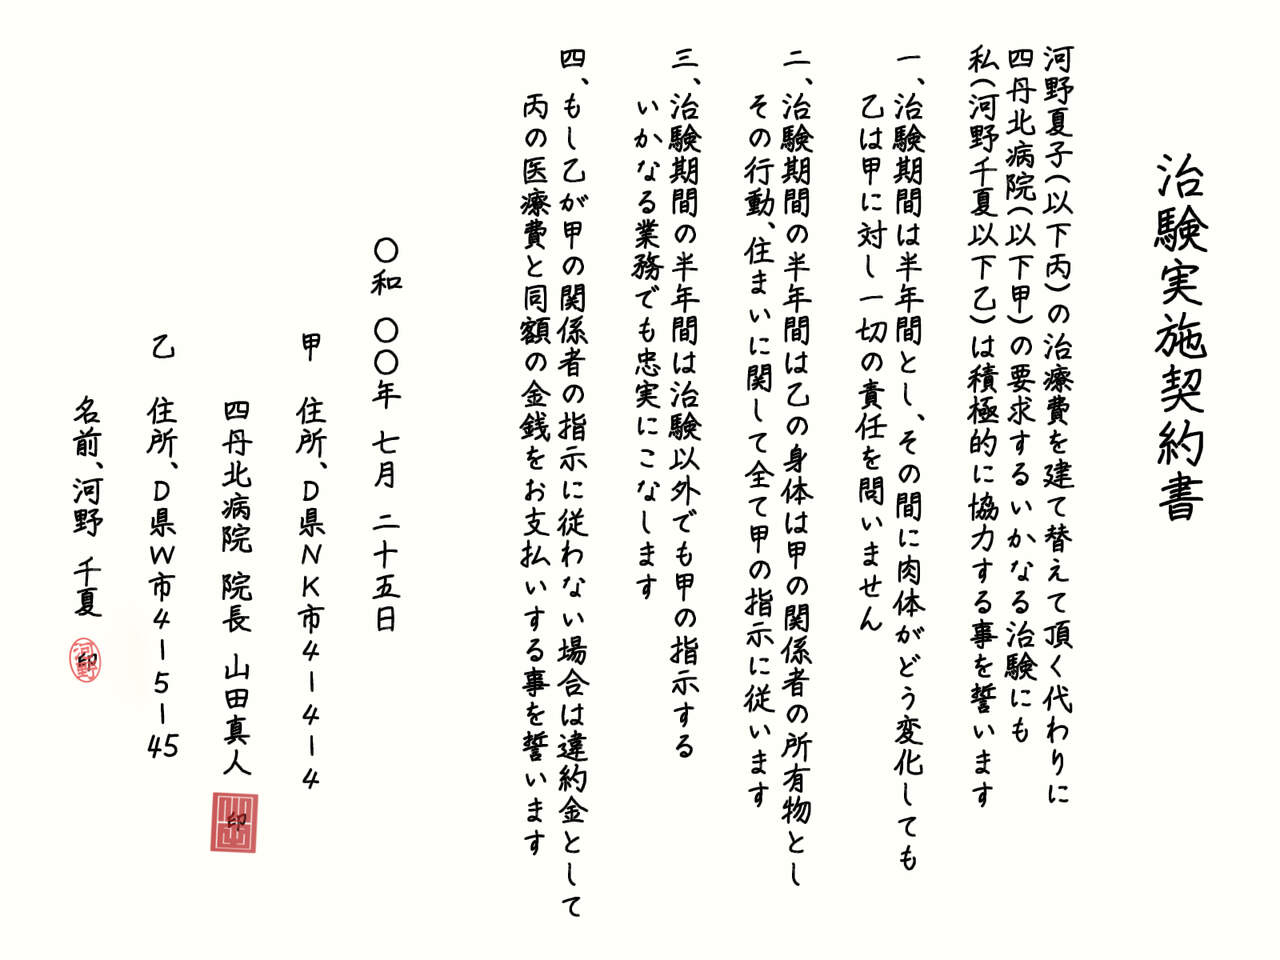 治験実施契約書
河野夏子(以下丙)の治療費を建て替えて頂く代わりに
四丹北病院(以下甲)の要求するいかなる治験にも
私(河野千夏以下乙)は積極的に協力する事を誓います
一、治験期間は半年間とし、その間に肉体がどう変化しても
乙は甲に対し一切の責任を問いません
二、治験期間の半年間は乙の身体は甲の関係者の所有物とし
その行動、住まいに関して全て甲の指示に従います
三、治験期間の半年間は治験以外でも甲の指示する
いかなる業務でも忠実にこなします
四、もし乙が甲の関係者の指示に従わない場合は違約金として
丙の医療費と同額の金銭をお支払いする事を誓います
〇和 〇〇年 七月 二十五日
甲 住所、D県NK市4ー4ー4
四丹北病院 院長 山田真人 印
乙 住所、D県W市4ー5ー45
名前、河野 千夏 印
河野